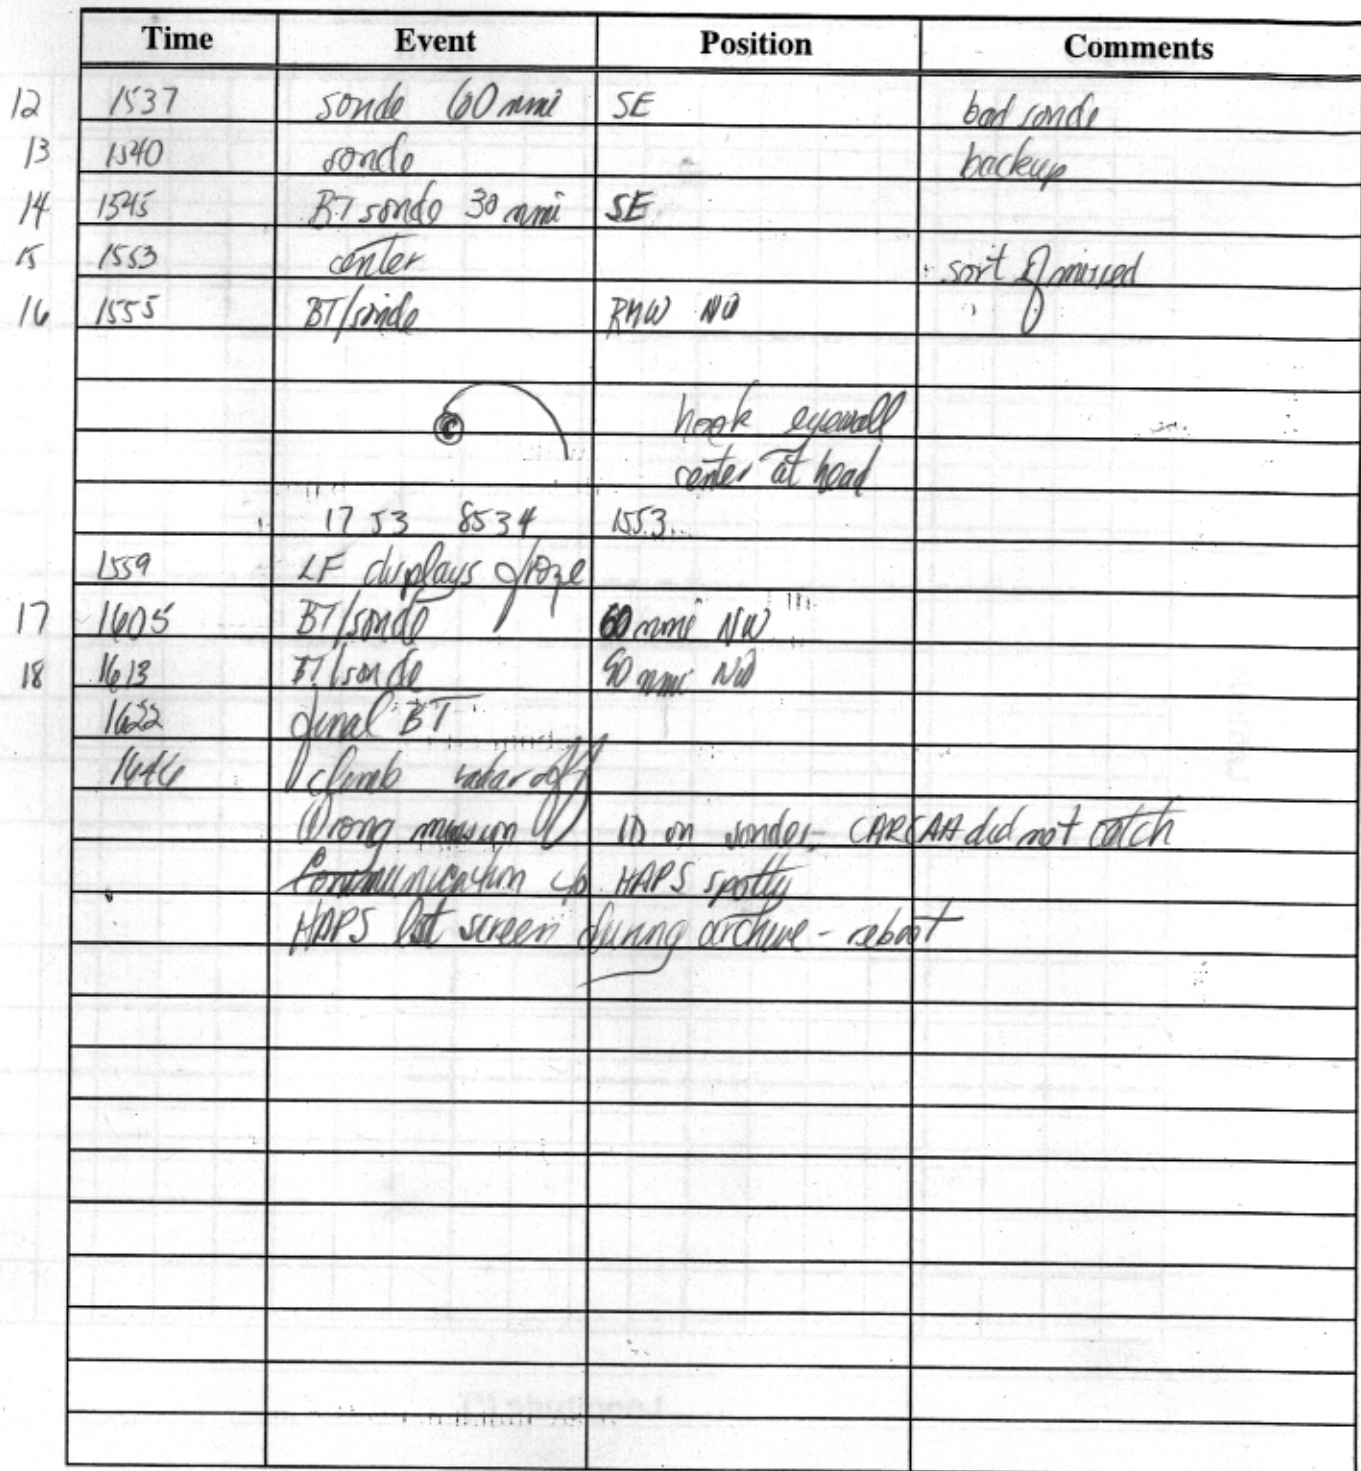 Time Event Position Comments
12 1537 sonde 60 nmi SE bad sonde
13 1540 sonde backup
14 1545 BT sonde 30 nmi SE
15 1553 center sort of missed
16 1555 BT/sonde RMW NW
hook eyewall
center at head
17 53 8534 1553
1559 LF displays froze
17 1605 BT/sonde 60 nmi NW
18 1613 BT/sonde 90 nmi NW
1622 final BT
1646 climb radar off
Wrong mission ID on sondes - CARCAH did not catch
Communication w HAPS spotty
HAPS lost screen during archive - reboot